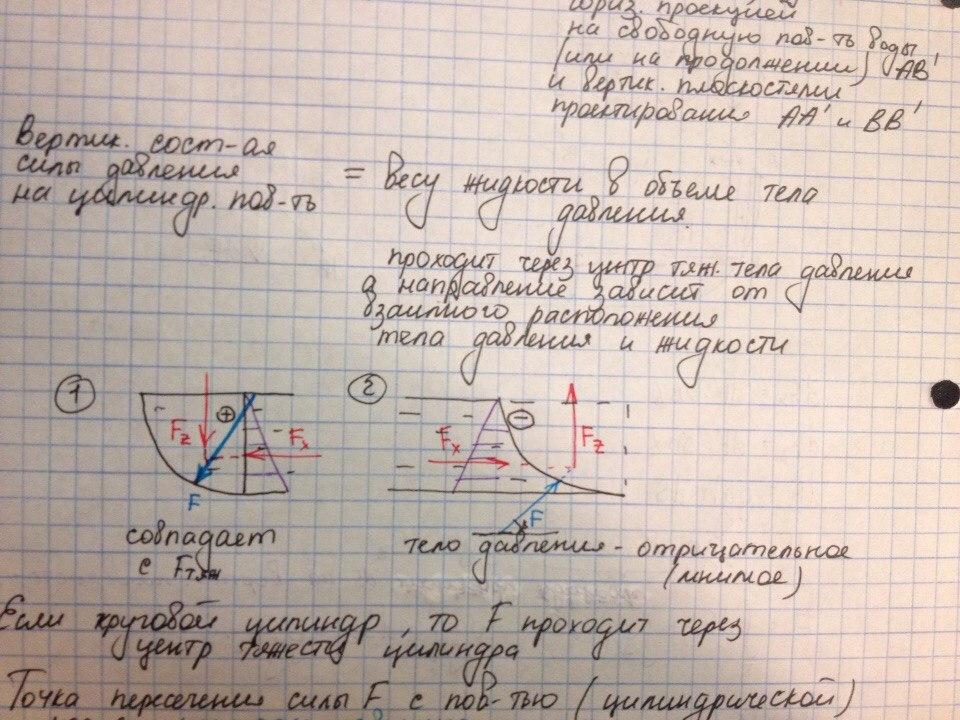 гориз. проекцией
на свободную пов-ть воды
(или на продолжении) AB'
и вертик. плоскостями
проектирования AA' и BB'
Вертик. сост-ая
силы давления
на цилиндр. пов-ть
= Весу жидкости в объеме тела
давления.
проходит через центр тяж. тела давления
а направление зависит от
взаимного расположения
тела давления и жидкости
1
+
Fz
Fx
F
совпадает
с Fтяж
2
−
Fx
Fz
F
тело давления - отрицательное
(мнимое)
Если круговой цилиндр, то F проходит через
центр тяжести цилиндра
Точка пересечения силы F с пов-тью (цилиндрической)